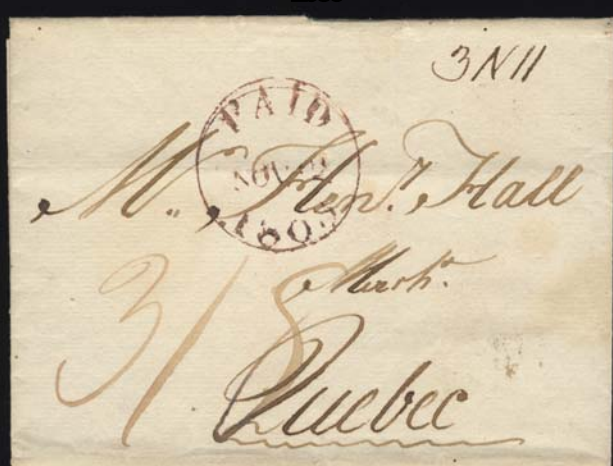 3 N 11
PAID
NOV
Mr. Henry. Hall
Mercht.
3/8
Quebec